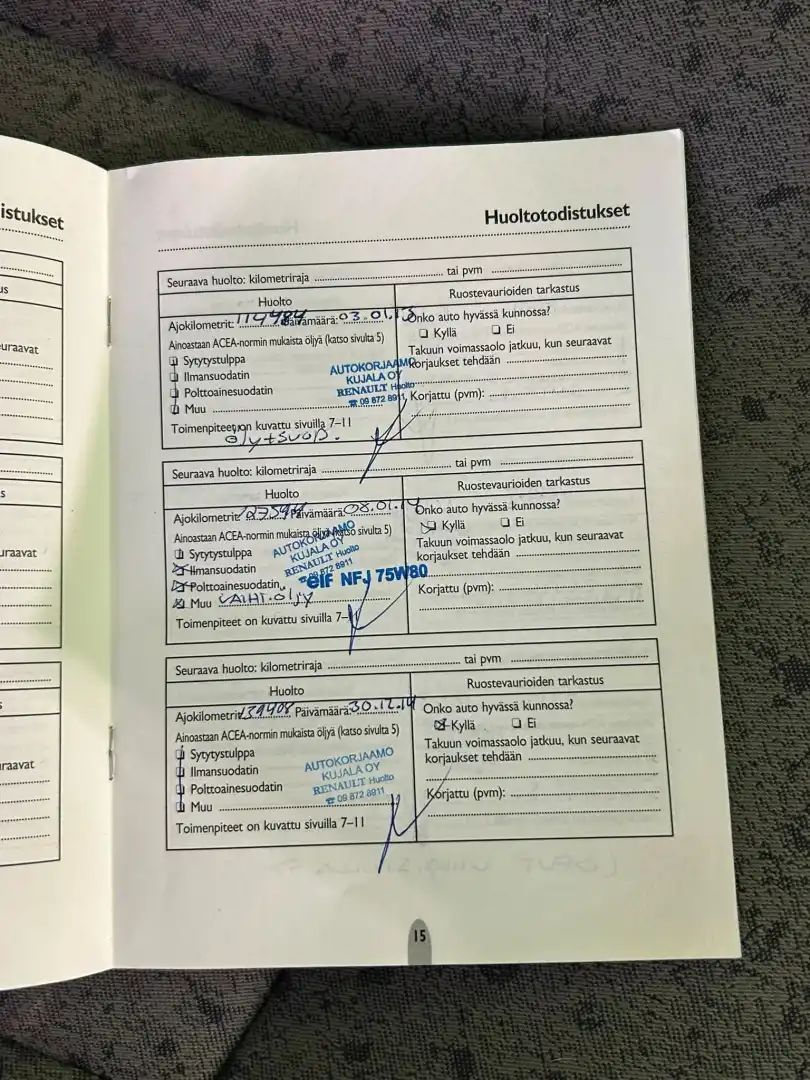 istukset
us
euraavat
s
uraavat
s
raavat
Huoltotodistukset
Seuraava huolto: kilometriraja ........ tai pvm ........
Huolto
Ruostevaurioiden tarkastus
Ajokilometrit: 114484 Päivämäärä: 03.01.13
Onko auto hyvässä kunnossa?
Kyllä Ei
Ainoastaan ACEA-normin mukaista öljyä (katso sivulta 5)
Takuun voimassaolo jatkuu, kun seuraavat
korjaukset tehdään ........
Sytytystulppa
Ilmansuodatin
Polttoainesuodatin
Muu ........
AUTOKORJAAMO
KUJALA OY
RENAULT Huolto
☎ 09 872 8911
Korjattu (pvm): ........
Toimenpiteet on kuvattu sivuilla 7–11
Seuraava huolto: kilometriraja ........ tai pvm ........
Huolto
Ruostevaurioiden tarkastus
Ajokilometrit: Päivämäärä: 08.01.14
Onko auto hyvässä kunnossa?
Kyllä Ei
Ainoastaan ACEA-normin mukaista öljyä (katso sivulta 5)
Takuun voimassaolo jatkuu, kun seuraavat
korjaukset tehdään ........
Sytytystulppa
Ilmansuodatin
Polttoainesuodatin
Muu VAIHT.öljy
AUTOKORJAAMO
KUJALA OY
RENAULT Huolto
☎ 09 872 8911
elf NFJ 75W80
Korjattu (pvm): ........
Toimenpiteet on kuvattu sivuilla 7–
Seuraava huolto: kilometriraja ........ tai pvm ........
Huolto
Ruostevaurioiden tarkastus
Ajokilometrit: 139408 Päivämäärä: 30.12.14
Onko auto hyvässä kunnossa?
Kyllä Ei
Ainoastaan ACEA-normin mukaista öljyä (katso sivulta 5)
Takuun voimassaolo jatkuu, kun seuraavat
korjaukset tehdään ........
Sytytystulppa
Ilmansuodatin
Polttoainesuodatin
Muu ........
AUTOKORJAAMO
KUJALA OY
RENAULT Huolto
☎ 09 872 8911
Korjattu (pvm): ........
Toimenpiteet on kuvattu sivuilla 7–11
15